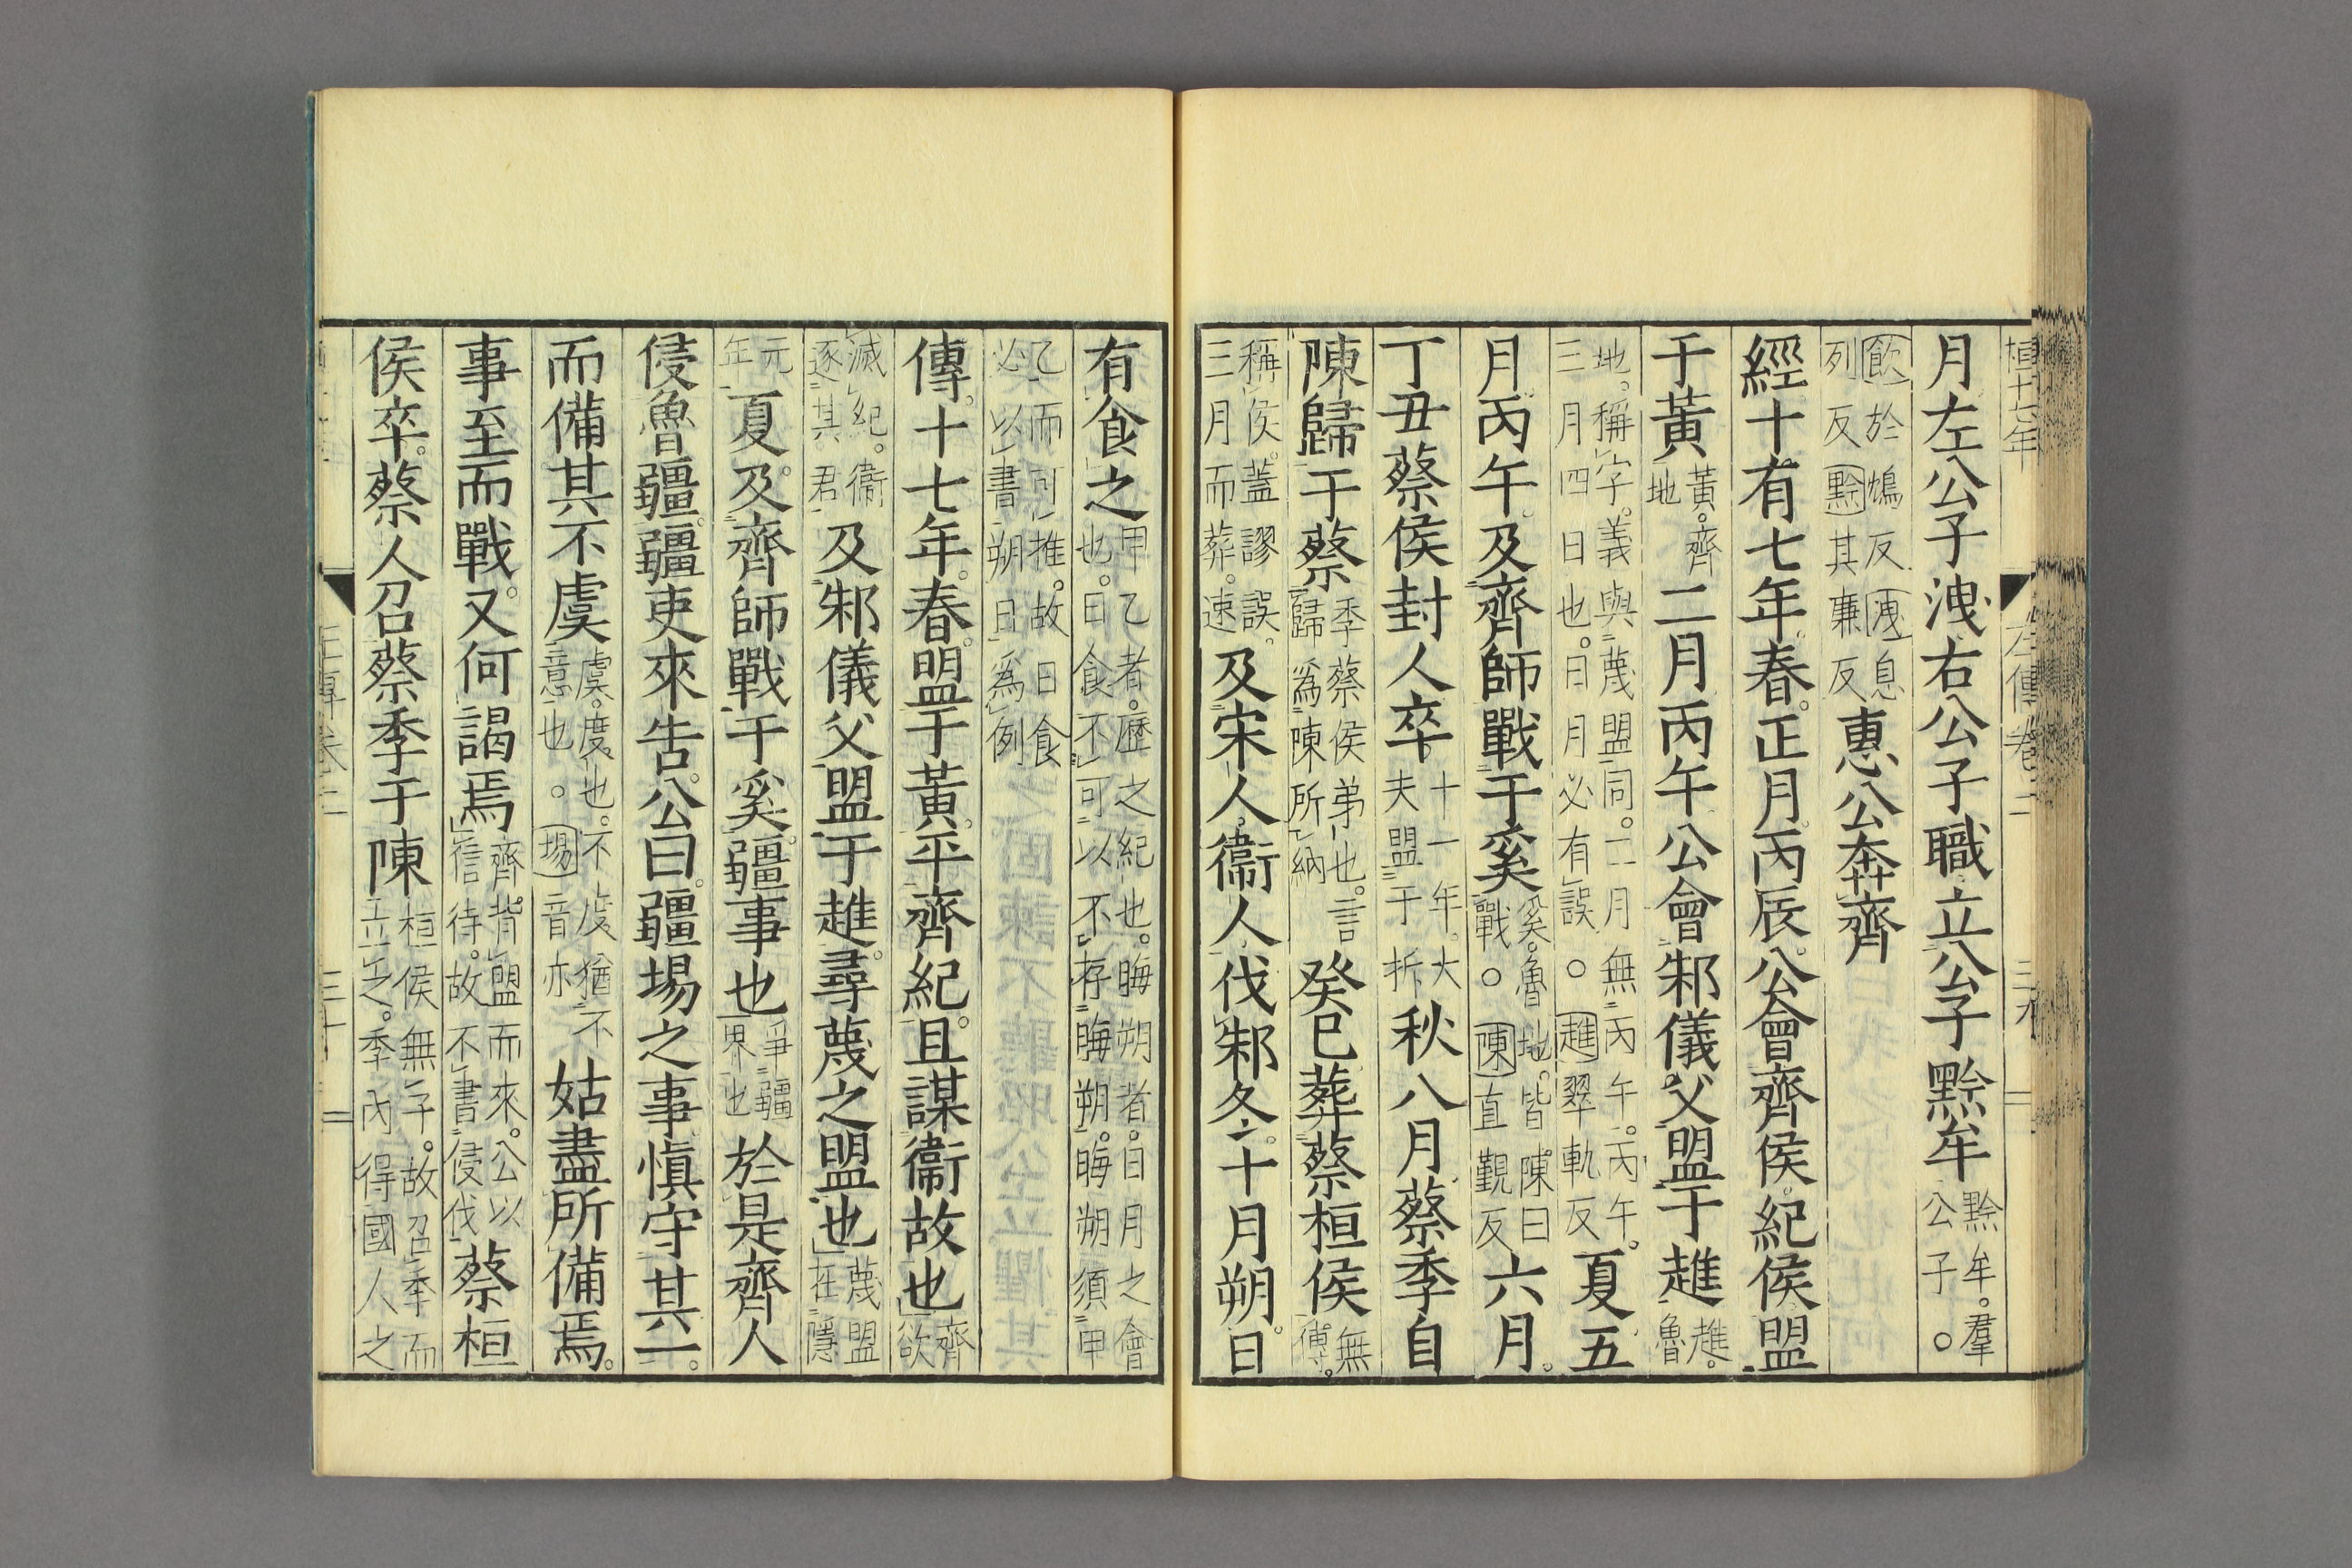 月左公子洩右公子職立公子黔牟黔牟羣公子○
飮於鴆反洩息列反黔其廉反惠公奔齊
經十有七年春正月丙辰公會齊侯紀侯盟
于黃黃齊地二月丙午公會邾儀父盟于趡趡魯
地稱字義與蔑盟同二月無丙午丙午三月四日也日月必有誤○趡翠軌反夏五
月丙午及齊師戰于奚奚魯地皆陳曰戰○陳直覲反六月
丁丑蔡侯封人卒十一年大夫盟于折秋八月蔡季自
陳歸于蔡季蔡侯弟也言歸爲陳所納癸巳葬蔡桓侯無傳
稱侯蓋謬誤三月而葬速及宋人衞人伐邾冬十月朔日
有食之甲乙者歷之紀也晦朔者日月之會也日食不可以不存晦朔晦朔須甲
乙而可推故日食必以書朔日爲例
傳十七年春盟于黃平齊紀且謀衞故也齊欲
滅紀衞逐其君及邾儀父盟于趡尋蔑之盟也蔑盟在隱
元年夏及齊師戰于奚疆事也爭疆界也於是齊人
侵魯疆疆吏來告公曰疆埸之事愼守其一
而備其不虞虞度也不度猶不意也○埸音亦姑盡所備焉
事至而戰又何謁焉齊背盟而來公以信待故不書侵伐蔡桓
侯卒蔡人召蔡季于陳桓侯無子故召季而立之季內得國人之